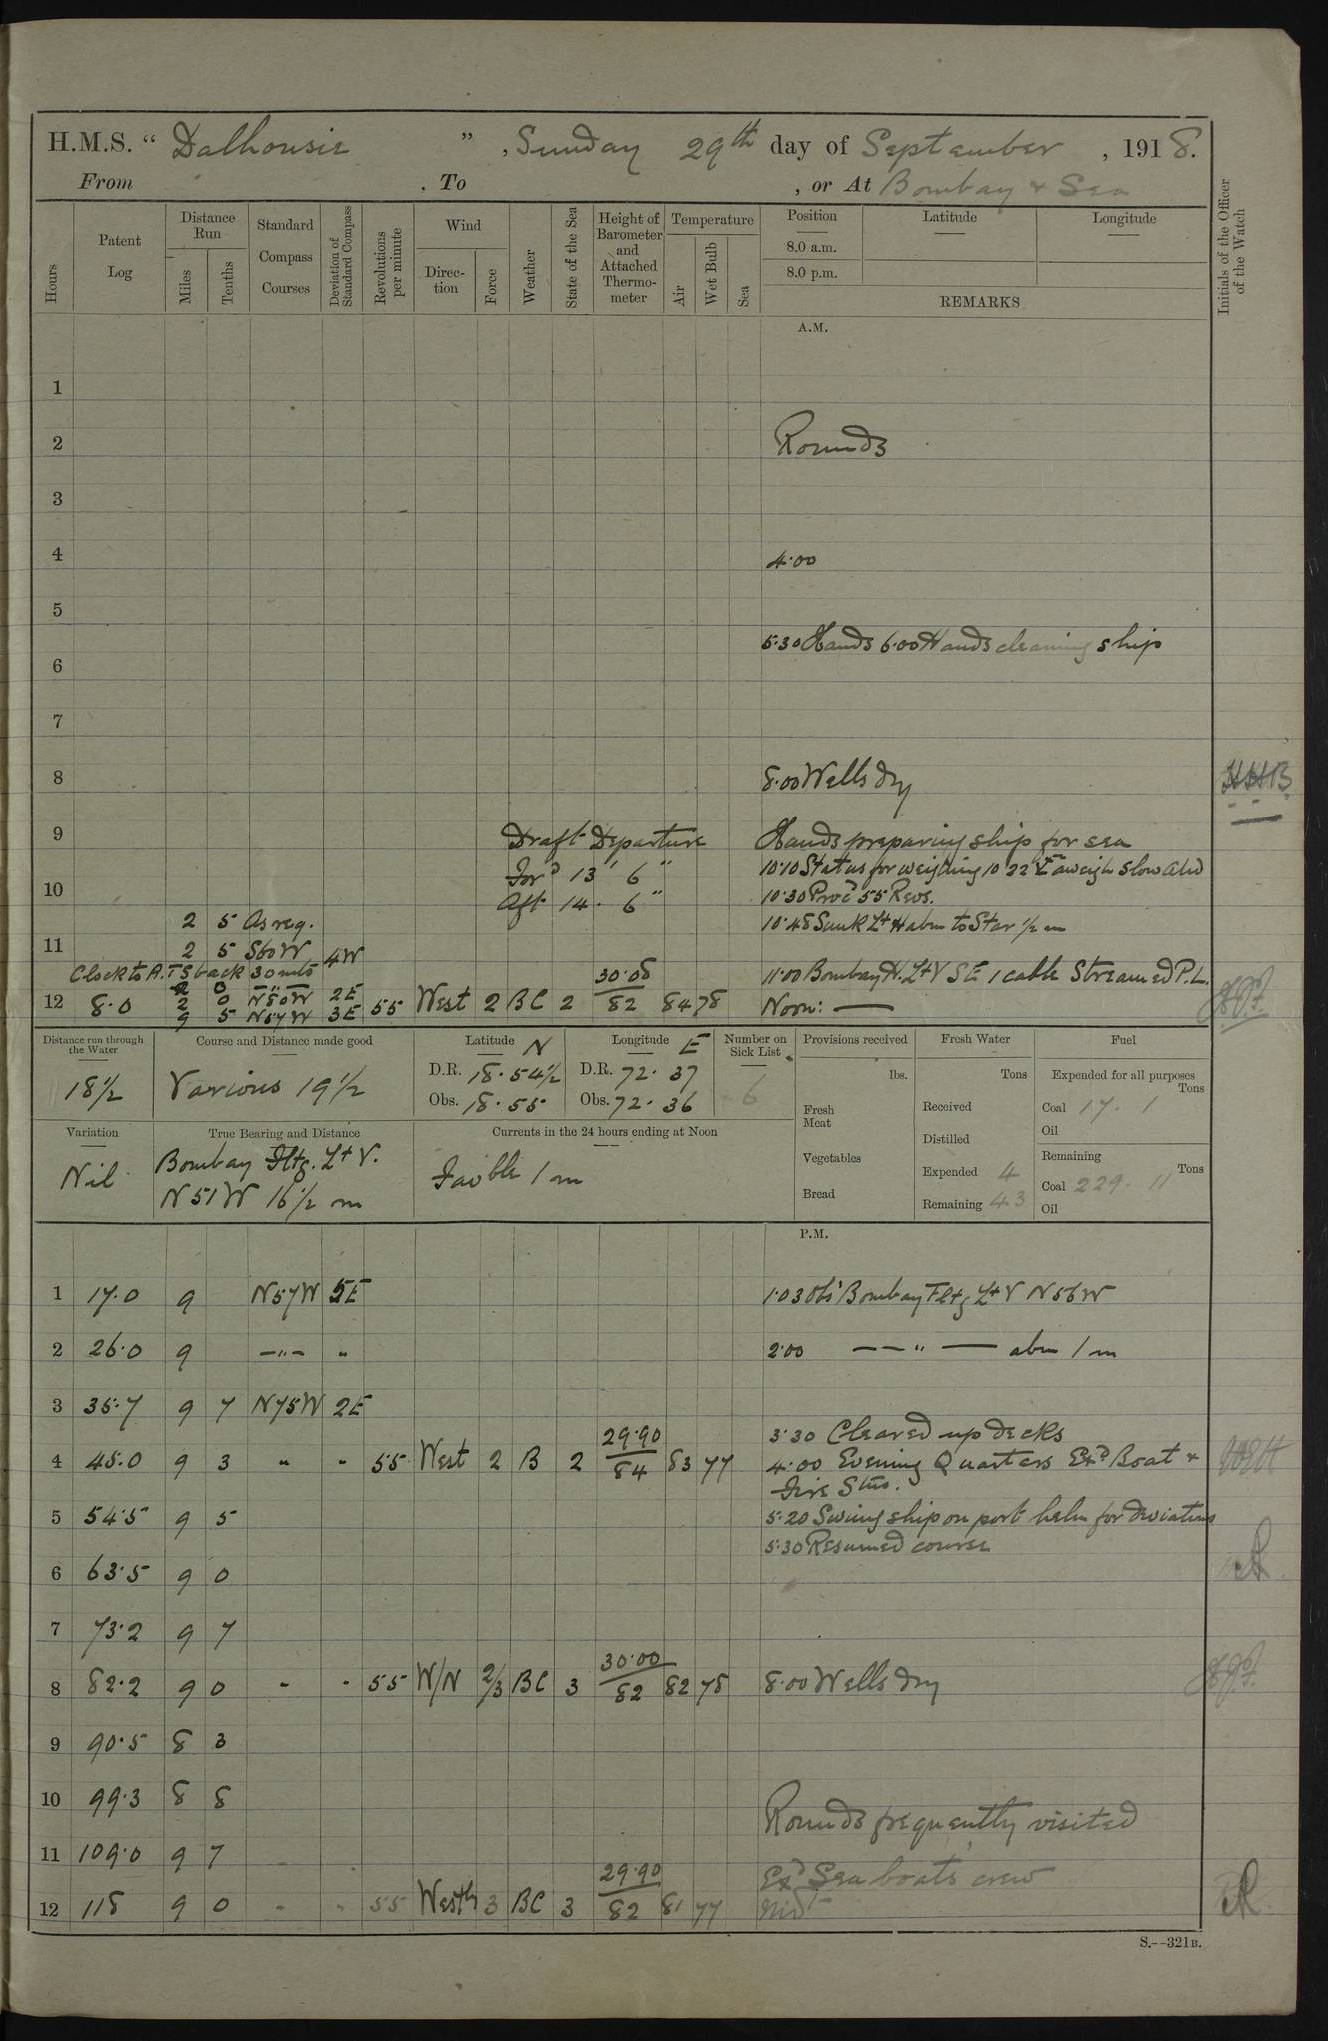 H.M.S. " Dalhousie ", Sunday 29th day of September, 1918.
From , To , or At Bombay & Sea
Hours
Patent Log
Distance Run
Miles
Tenths
Standard Compass Courses
Deviation of Standard Compass
Revolutions per minute
Wind
Direction
Force
Weather
State of the Sea
Height of Barometer and Attached Thermometer
Temperature
Air
Wet Bulb
Sea
Position Latitude Longitude
8.0 a.m.
8.0 p.m.
REMARKS
Initials of the Officer of the Watch
A.M.
1
2 Rounds
3
4 4.00
5
5.30 Hands 6.00 Hands cleaning ship
6
7
8 8.00 Wells dry HHB
9 Draft Departure Hands preparing ship for sea
Ford 13' 6" 10.10 Stat ns for weighing 10 22 aweigh Slow Ahd
10 Aft 14. 6" 10.30 Procd 55 Revs.
2 5 As req. 10.48 Sunk Lt H abm to Star 1/2 m
11 2 5 S60W 4W
Clock to A.T.S back 30 mts 30.08 11.00 Bombay H. Lt V SE 1 cable Streamed P.L.
2 0 N80W 2E
12 8.0 9 5 N57W 3E 55 West 2 BC 2 82 84 78 Noon: —
Distance run through the Water
18 1/2
Course and Distance made good
Various 19 1/2
Latitude N
D.R. 18. 54 1/2
Obs. 18. 55
Longitude E
D.R. 72. 37
Obs. 72. 36
Number on Sick List
6
Provisions received
lbs.
Fresh Meat
Vegetables
Bread
Fresh Water
Tons
Received
Distilled
Expended 4
Remaining 43
Fuel
Expended for all purposes
Tons
Coal 17. 1
Oil
Remaining
Tons
Coal 229. 11
Oil
Variation
Nil
True Bearing and Distance
Bombay Fltg. Lt V.
N 51 W 16 1/2 m
Currents in the 24 hours ending at Noon
Favble 1 m
P.M.
1 17.0 9 N57W 5E 1.03 Obs Bombay Fltg Lt V N56W
2 26.0 9 —"— " 2.00 — — " — abm 1 m
3 35.7 9 7 N75W 2E
29.90 3.30 Cleared up decks
4 45.0 9 3 " " 55 West 2 B 2 84 83 77 4.00 Evening Quarters Exd Boat &
Fire Stns.
5 54.5 9 5 5.20 Swing ship on port helm for deviations
5.30 Resumed course
6 63.5 9 0
7 73.2 9 7
30.00
8 82.2 9 0 " " 55 W/N 2/3 BC 3 82 82 78 8.00 Wells dry
9 90.5 8 3
10 99.3 8 8
Rounds frequently visited
11 109.0 9 7
29.90 Exd Sea boats crew
12 118 9 0 " " 55 Westly 3 BC 3 82 81 77 Midt
S.--321B.